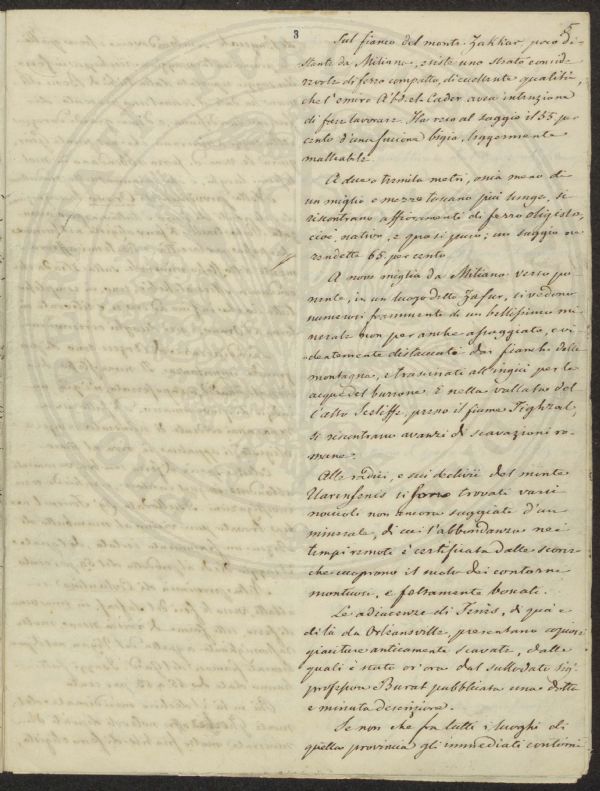 3
5
Sul fianco del monte Zakkar poco di-
stante da Miliana, esiste uno strato conside-
revole di ferro compatto, di eccellente qualità,
che l'emiro Abd-el-Cader avea intenzione
di fare lavorare. Ha reso al saggio il 55 per
cento d'una fusione bigia, leggermente
malleabile
A due o tremila metri, ossia meno di
un miglio e mezzo toscano più lunge, si
riscontrano affioramenti di ferro oligisto,
cioè, nativo, e quasi puro; un saggio ne
rendette 65 per cento
A nove miglia da Miliana verso po-
nente, in un luogo detto Zafur, si vedono
numerosi frammenti di un bellissimo mi-
nerale non per anche assaggiato, evi-
dentemente distaccati dai fianchi delle
montagne, e trascinati all'ingiù per le
acque del burrone. E nella vallata del
l'alto Sceliffe, presso il fiume Tighzal,
si riscontrano avanzi di scavazioni ro-
mane.
Alle radici, e sui declivii del monte
Uarenfenis si sono trovati varii
noccioli non ancora saggiati d'un
minerale, di cui l'abbondanza nei
tempi remoti è certificata dalle scorie
che cuoprono il suolo dei contorni
montuosi, e foltamente boscati.
Le adiacenze di Tenès, di quà e
di là da Orléansville, presentano
giaciture anticamente scavate, delle
quali è stata or'ora dal sullodato Sig.
professore Burat pubblicata una dotta
e minuta descrizione.
Se non che fra tutti i luoghi di
quella provincia gli immediati contorni